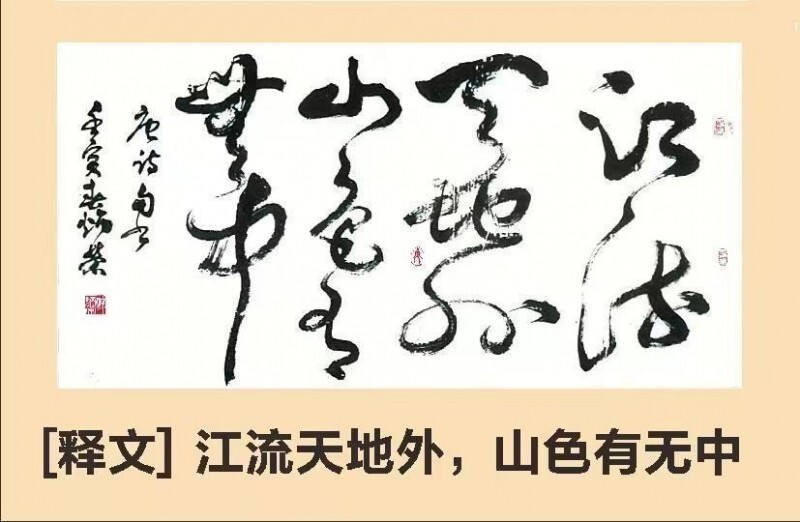 江流
天地外
山色有
無中
唐诗句书
壬寅春炳荣
[释文] 江流天地外，山色有无中